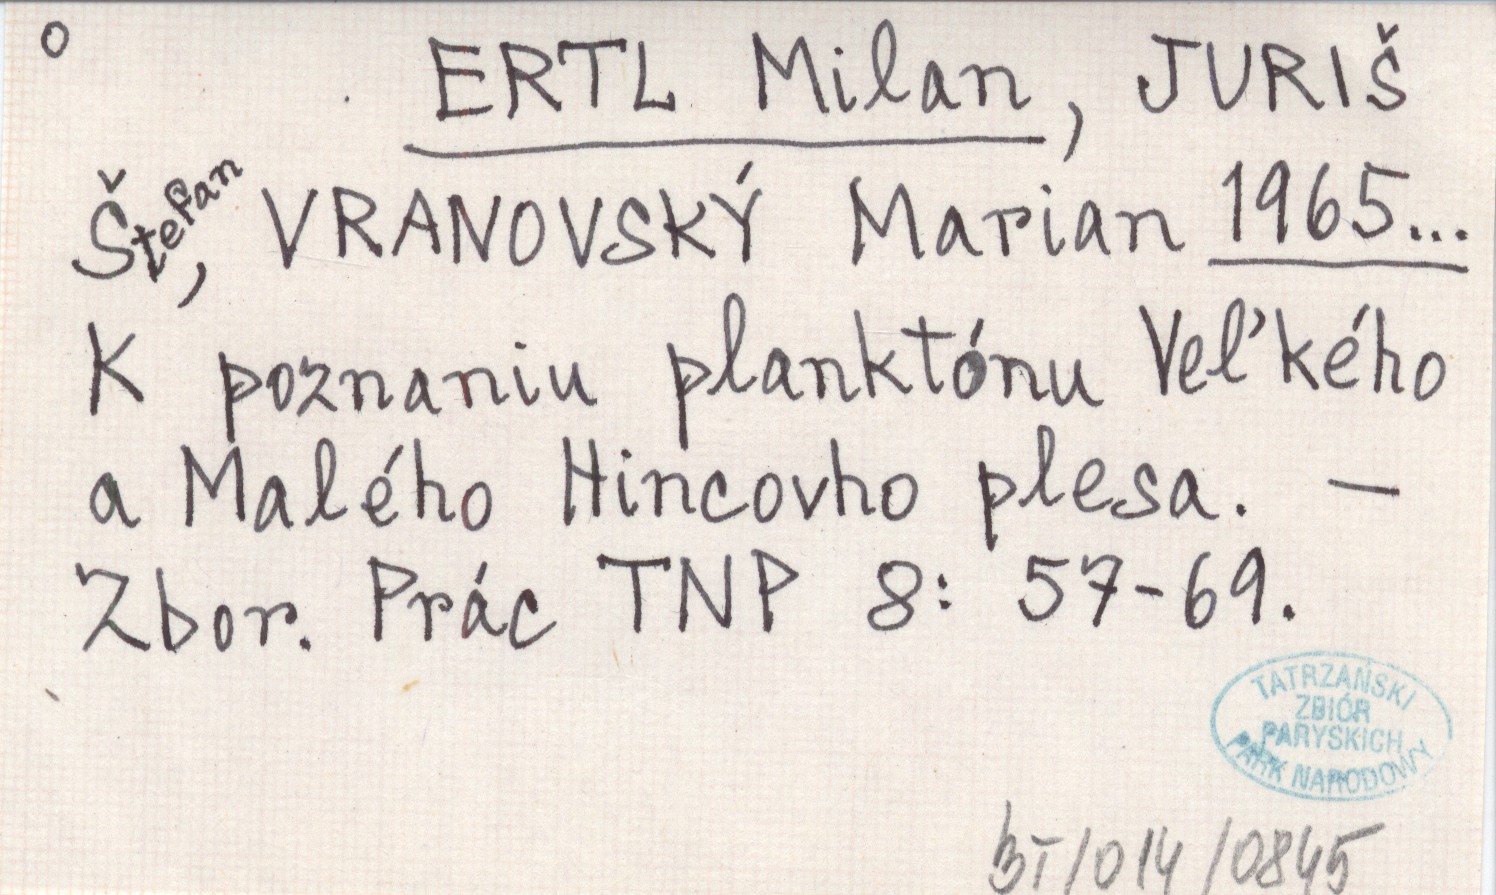 o
ERTL Milan, JURIŠ
Štefan, VRANOVSKÝ Marian 1965...
K poznaniu planktónu Veľkého
a Malého Hincovho plesa. —
Zbor. Prác TNP 8: 57-69.
TATRZAŃSKI
ZBIÓR
PARYSKICH
PARK NARODOWY
BT/014/0845